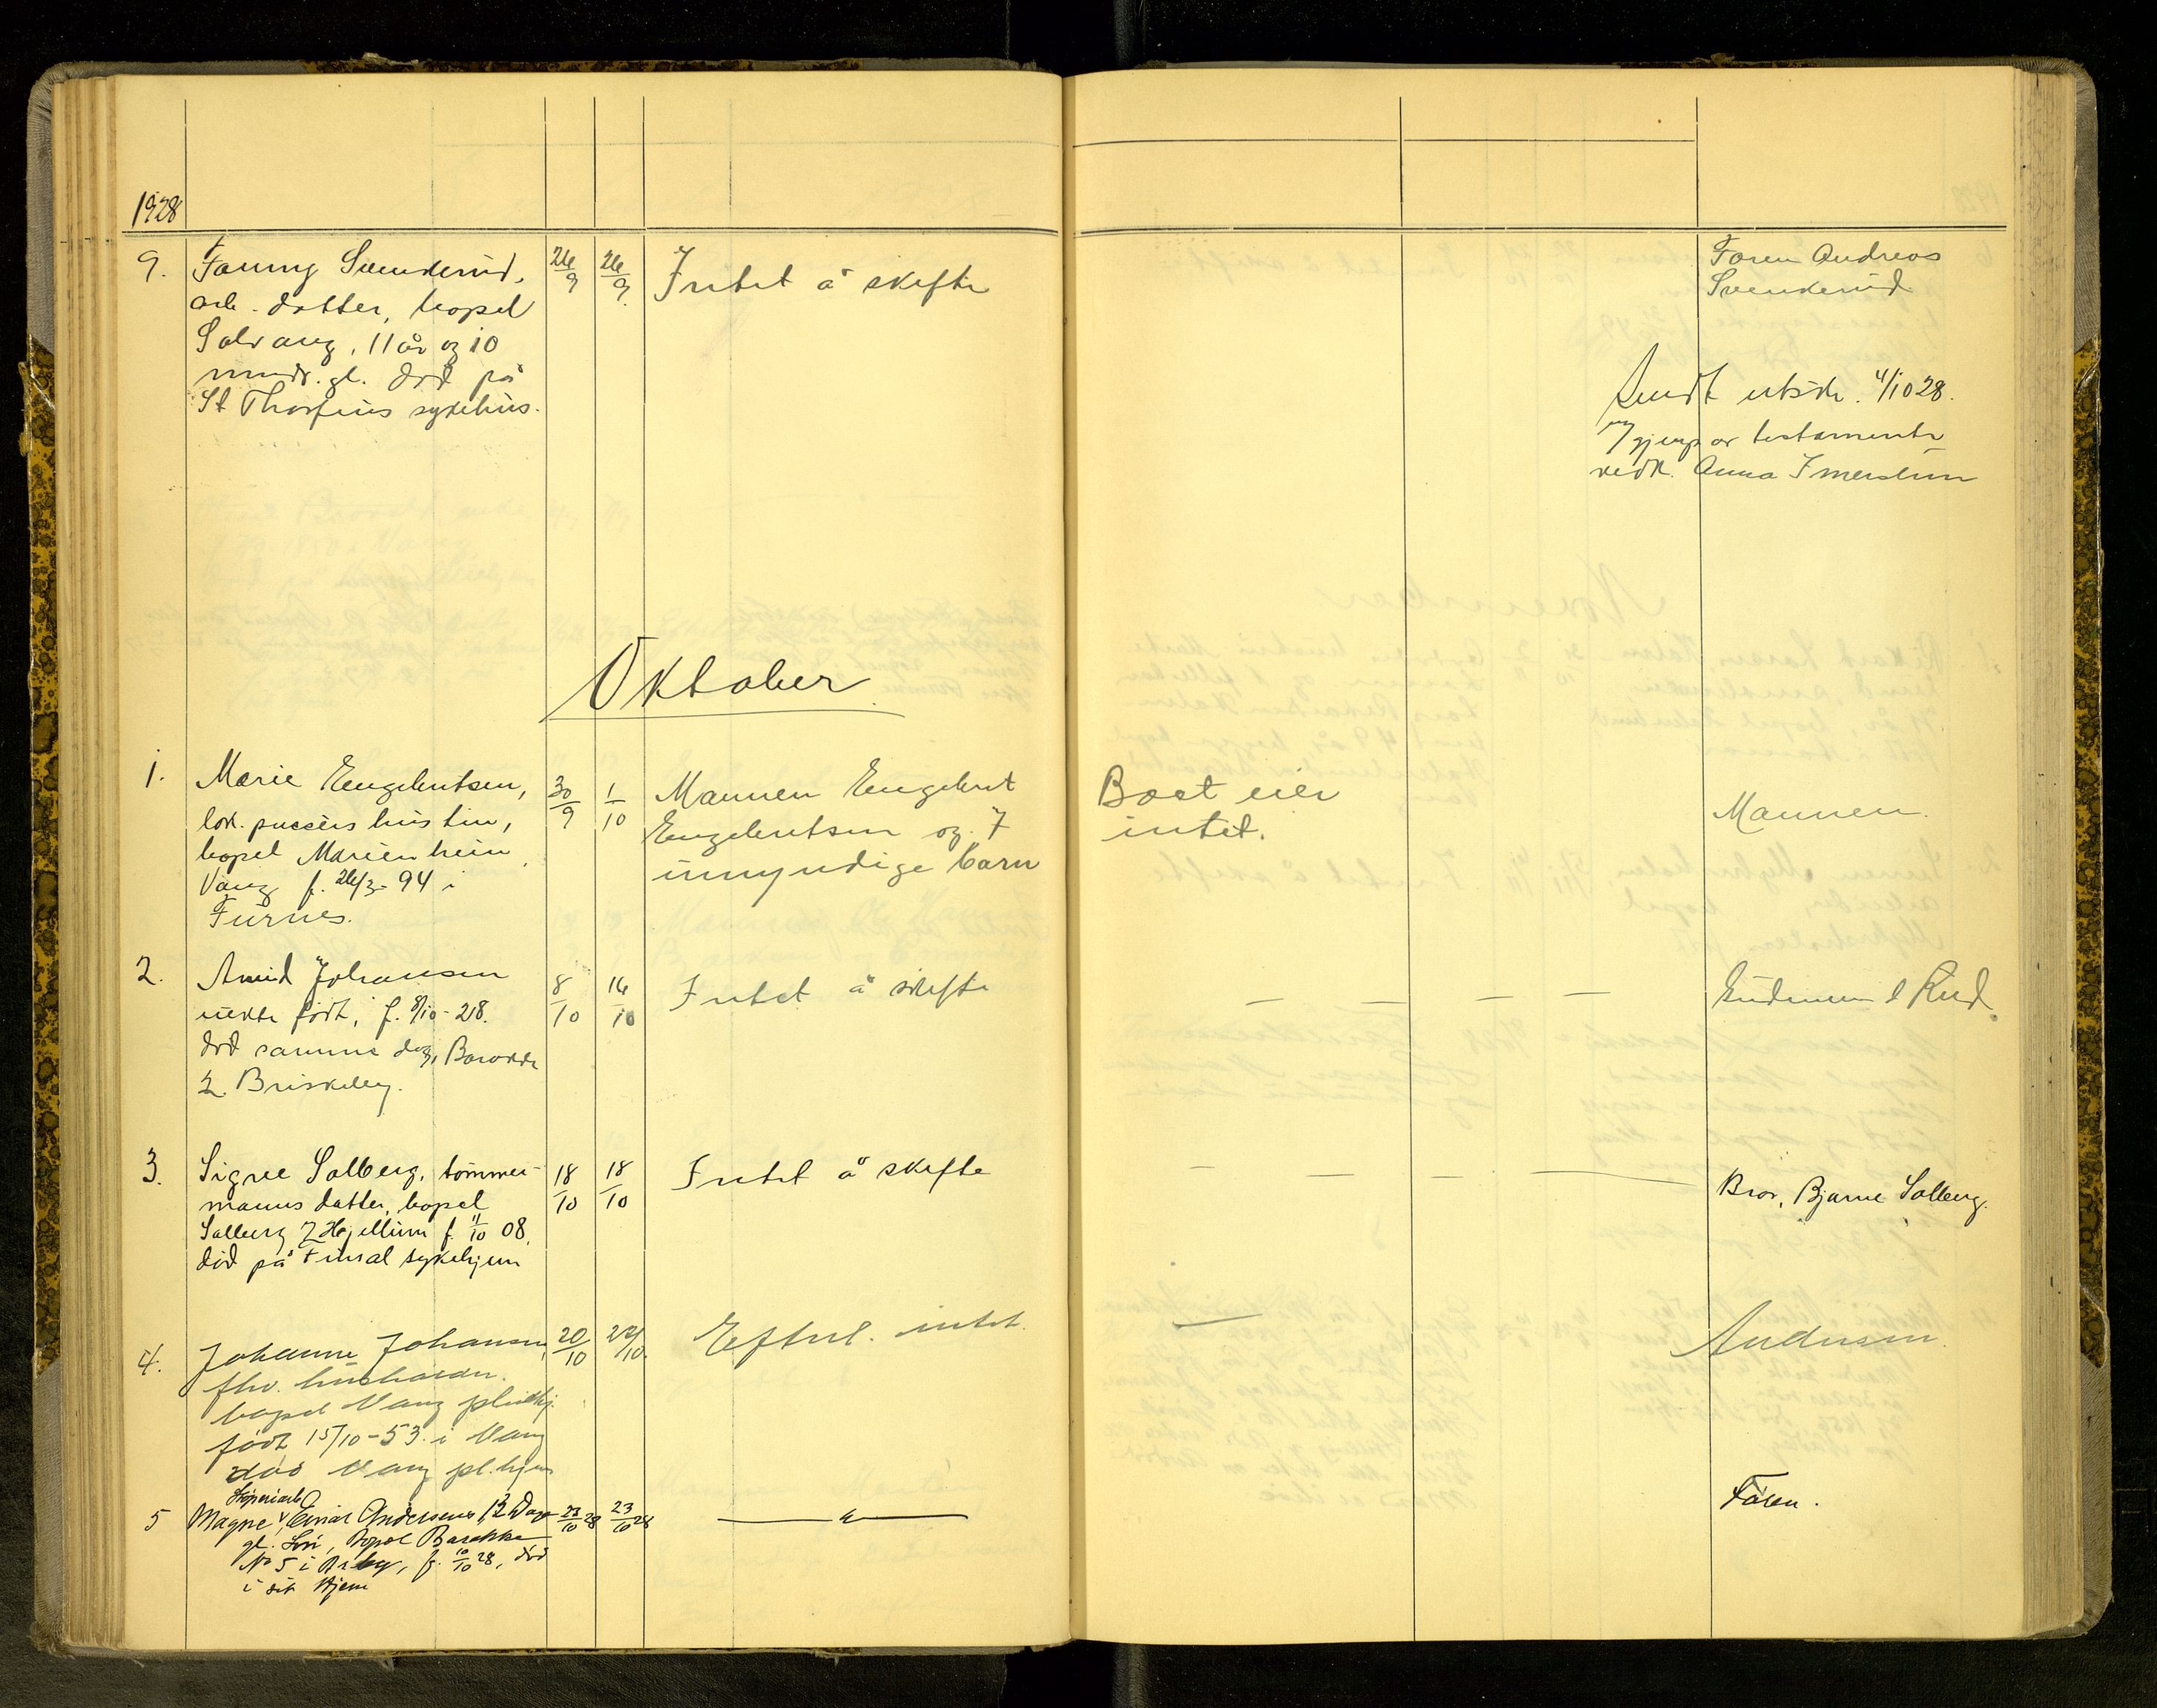 1928
9. Fanny Svenkerud, 26/9 26/9 Intet å skifte
arb. datter, bopel
Solvang, 11 år og 10
mndr. gl. død på
St Thorfins sykehus.
Faren Andreas
Svenkerud
Sendt utskr. 4/10 28.
av testamente
vedk. Anna Imerslun
Oktober
1. Marie Engebretsen, 30/9 1/10 Mannen Engebret
lok. pussers hustru, Engebretsen og 7
bopel Marienheim umyndige barn
Vang f. 26/3-94 i
Furnes.
Boet eier
intet.
Mannen.
2. Arvid Johansen 8/10 16/10 Intet å skifte
uekte født, f. 8/10-28.
død samme dag, Barakke
2. Briskeby.
— — — — Gudmun Rud
3. Signe Solberg, tømmer- 18/10 18/10 Intet å skifte
manns datter, bopel
Solberg Hjellum f. 11/10 08,
død på Finsal sykehjem
— — — — Bror, Bjarne Solberg.
4. Johanne Johansen, 20/10 22/10. Efterl. intet.
fhv. husholdn.
bopel Vang pleiehj.
født 15/10-53 i Vang
død Vang pl.hjem
— Andersen.
Støperiarb
5 Magne Einar Andersens, 12 Dage 23/10 28 23/10 28 — " —
gl. Søn, Bopel Barakke
No 5 i , f. 10/10 28, død
i sit Hjem
Faren.